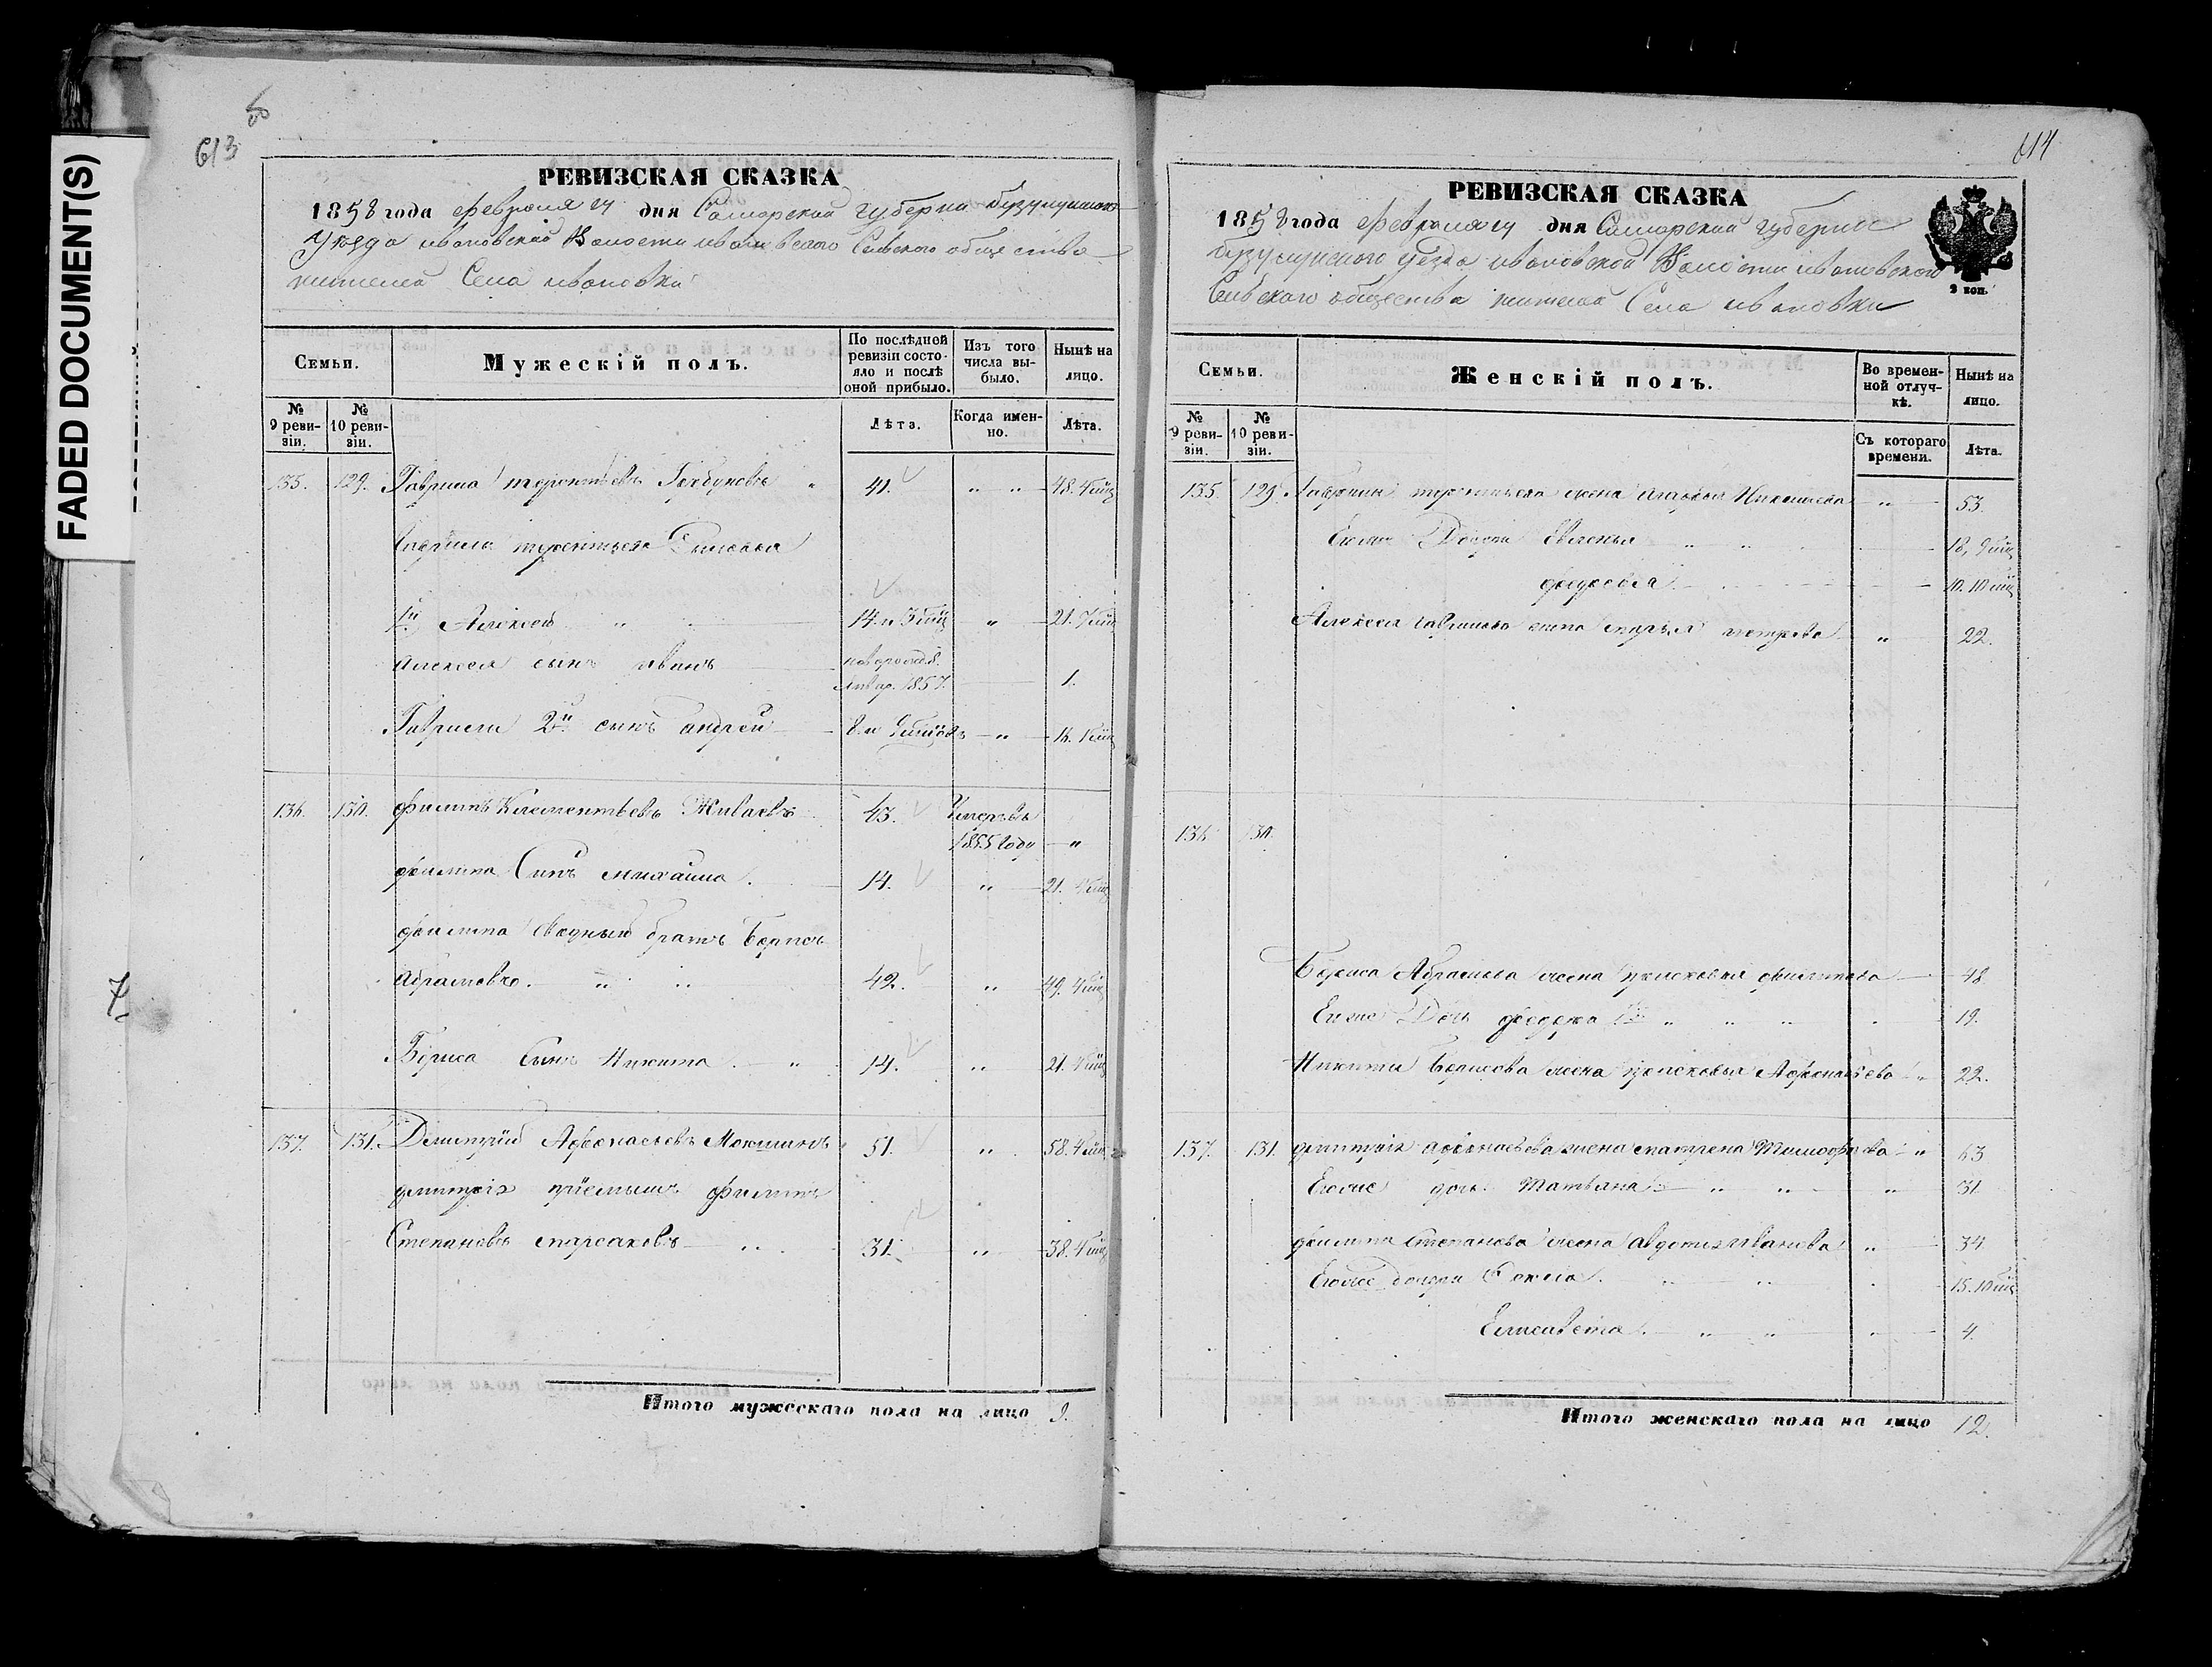 FADED DOCUMENT(S)
613
РЕВИЗСКАЯ СКАЗКА
1858 года февраля дня Самарской губерни бузулукского
Уѣзда ивановской Волости ивановского Сельского общества
жителей Села ивановки
Семьи.
Мужескій полъ.
По послѣдней
ревизіи состо-
яло и послѣ
оной прибыло.
Изъ того
числа вы-
было.
Нынѣ на
лицо.
№
9 реви-
зіи.
№
10 реви-
зіи.
Лѣта.
Когда имен-
но.
Лѣта.
135. 129. Гаврила терентьевъ Горбуновъ " 41. " " 48.
Гаврилы терентьева Сыновья
1й Алексей " 14. и " 21.
Алексея сынъ иванъ новорожд.
Январ. 1857. 1.
Гаврилы 2й сынъ андрей 8. и " 16.
136. 130. филипъ Клементьевъ Живаевъ 43. Умеръ въ
1855 году "
филипа Сынъ михайла. 14. " 21.
филипа сводный братъ Борисъ
абрамовъ. " " 42. " 49.
Бориса Сынъ Никита. " 14. " 21.
137. 131. Дмитрій Афонасьевъ Мокшанъ 51. " 58.
дмитрія пріемышъ филипъ
Степановъ 31. " 38.
Итого мужескаго пола на лицо 9.
614
РЕВИЗСКАЯ СКАЗКА
1858 года февраля дня Самарской губерніи
бузулукского Уезда ивановской Волости ивановского
Сельского общества жителей Села ивановки
2 коп.
Семьи.
Женскій полъ.
Во времен-
ной отлуч-
кѣ.
Нынѣ на
лицо.
№
9 реви-
зіи.
№
10 реви-
зіи.
Съ котораго
времени.
Лѣта.
135. 129. Гаврилы терентьева жена " 53.
Егоже Дочери Евгенья " " 18,
10.
Алексея гаврилова жена марья петрова " 22.
136 130.
Бориса Абрамова жена прасковья филипова 48.
Егоже Дочь федора " " " 19.
Никиты Борисова жена прасковья Афонасьева " 22.
137. 131. дмитрія афонасьева жена матрена Тимофеева " 63
Егоже дочь Татьяна " " " 31
филипа Степанова жена авдотья иванова " 34
Егоже дочери " " 15.
Елисавета. " " " 4.
Итого женскаго пола на лицо 12.